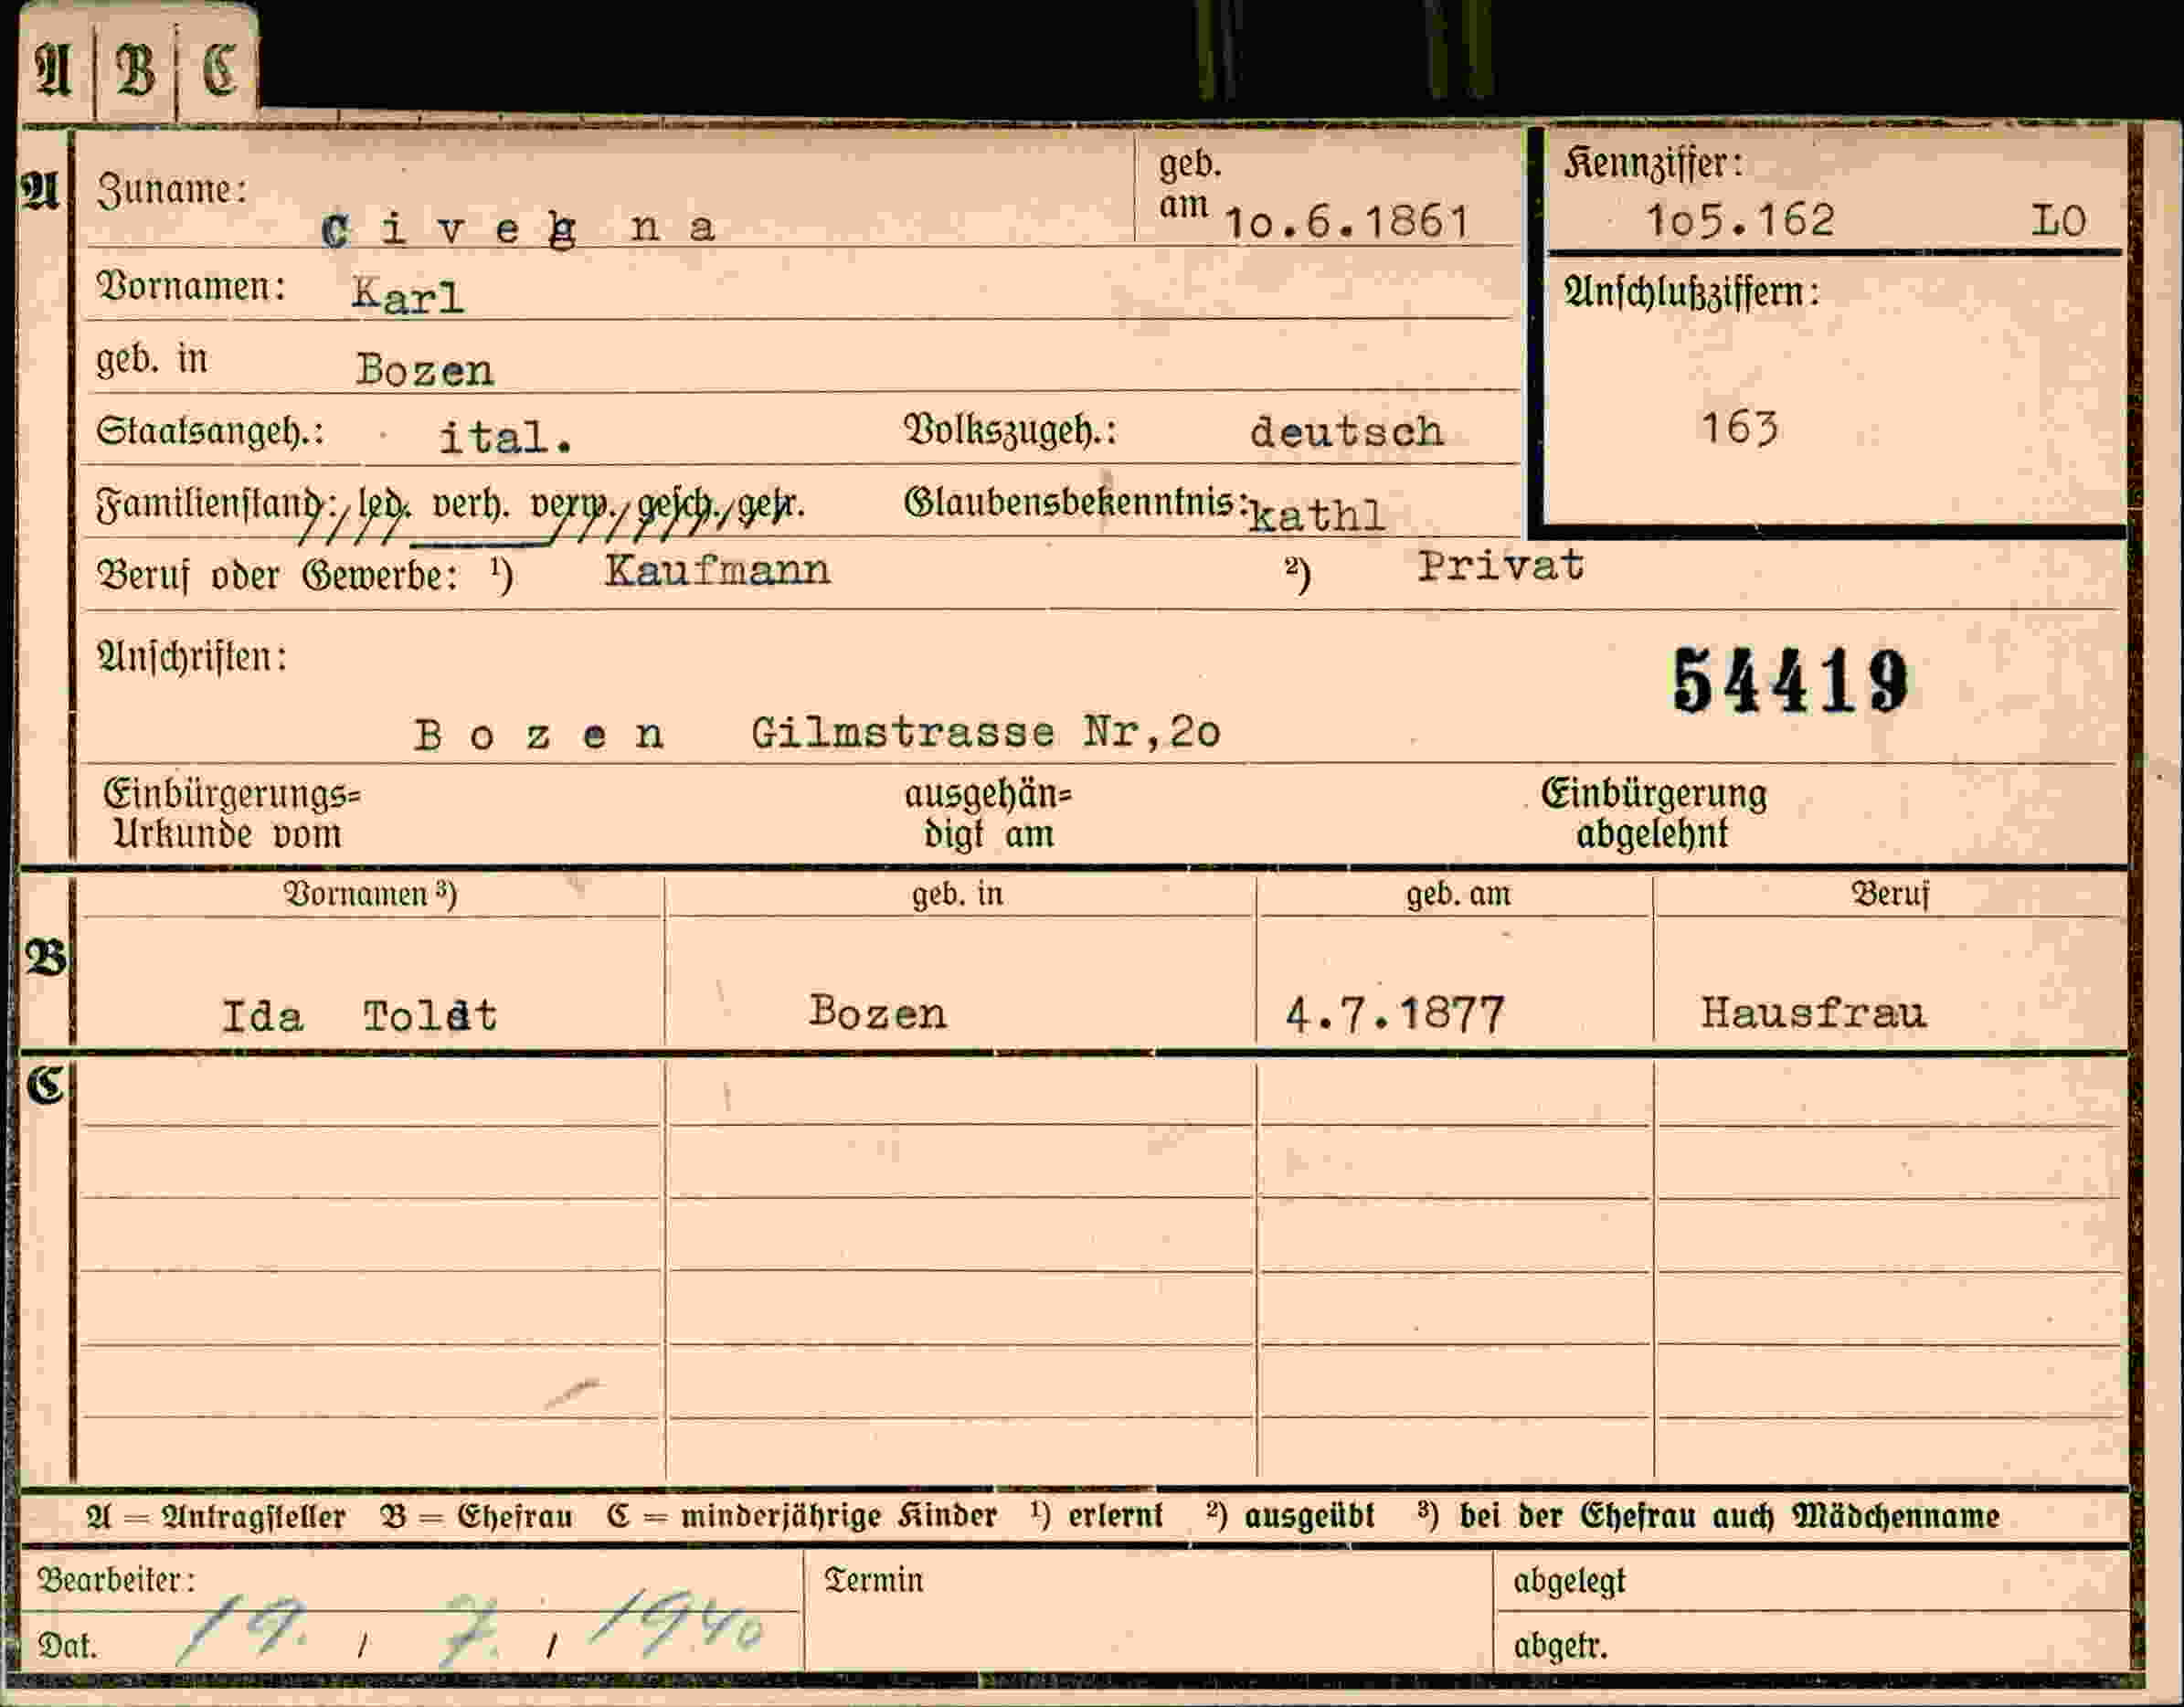 A B C
A Zuname: Civegna geb. am 1o.6.1861 Kennziffer: 1o5.162 LO
Vornamen: Karl Anschlußziffern:
geb. in Bozen
Staatsangeh.: ital. Volkszugeh.: deutsch 163
Familienstand: led. verh. verw. gesch. getr. Glaubensbekenntnis: kathl
Beruf oder Gewerbe: ¹) Kaufmann ²) Privat
Anschriften: 54419
Bozen Gilmstrasse Nr,2o
Einbürgerungs= ausgehän= Einbürgerung
Urkunde vom digt am abgelehnt
Vornamen ³) geb. in geb. am Beruf
B Ida Toldt Bozen 4.7.1877 Hausfrau
C
A = Antragsteller B = Ehefrau C = minderjährige Kinder ¹) erlernt ²) ausgeübt ³) bei der Ehefrau auch Mädchenname
Bearbeiter: Termin abgelegt
Dat. 19. / 7. / 1940 abgetr.